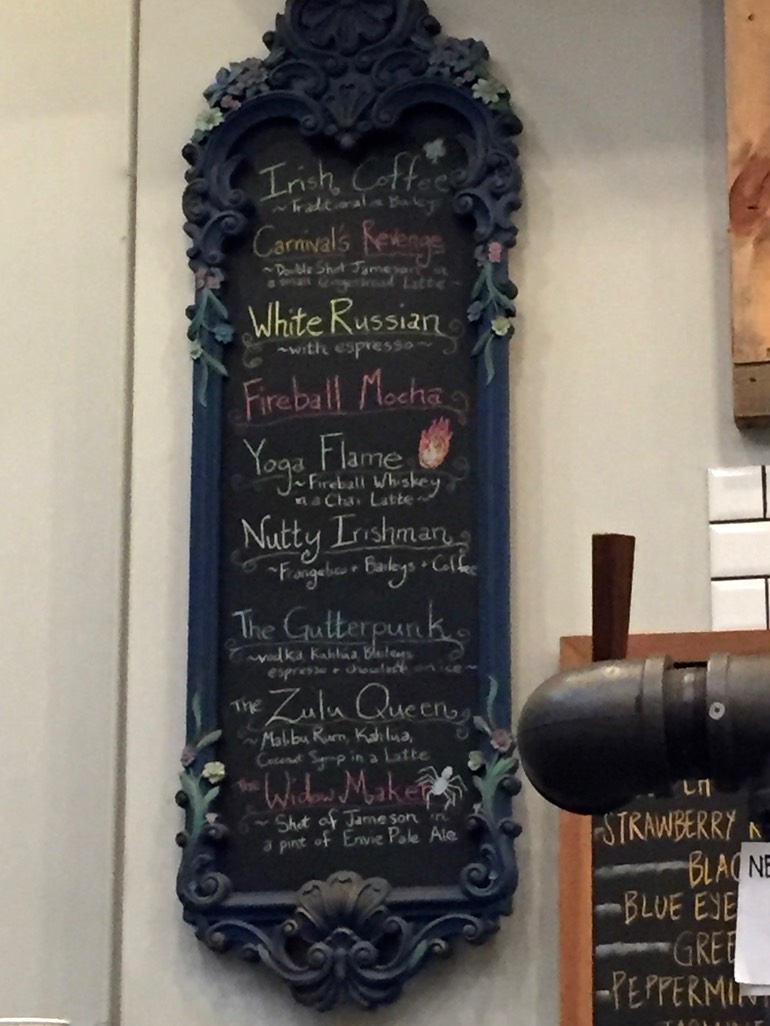 Irish Coffee
~ Traditional w Baileys
Carnival's Revenge
~ Double Shot Jameson in
a small Gingerbread Latte ~
White Russian
~ with espresso ~
Fireball Mocha
Yoga Flame
~ Fireball Whiskey
in a Chai Latte ~
Nutty Irishman
~ Frangelico + Baileys + Coffee
The Gutterpunk
~ vodka, Kahlua, Baileys
espresso + chocolate on ice ~
The Zulu Queen
~ Malibu Rum, Kahlua,
Coconut Syrup in a Latte
The Widow Maker
~ Shot of Jameson in
a pint of Envie Pale Ale
STRAWBERRY K
BLAC
NE
BLUE EYE
GREE
PEPPERMIN